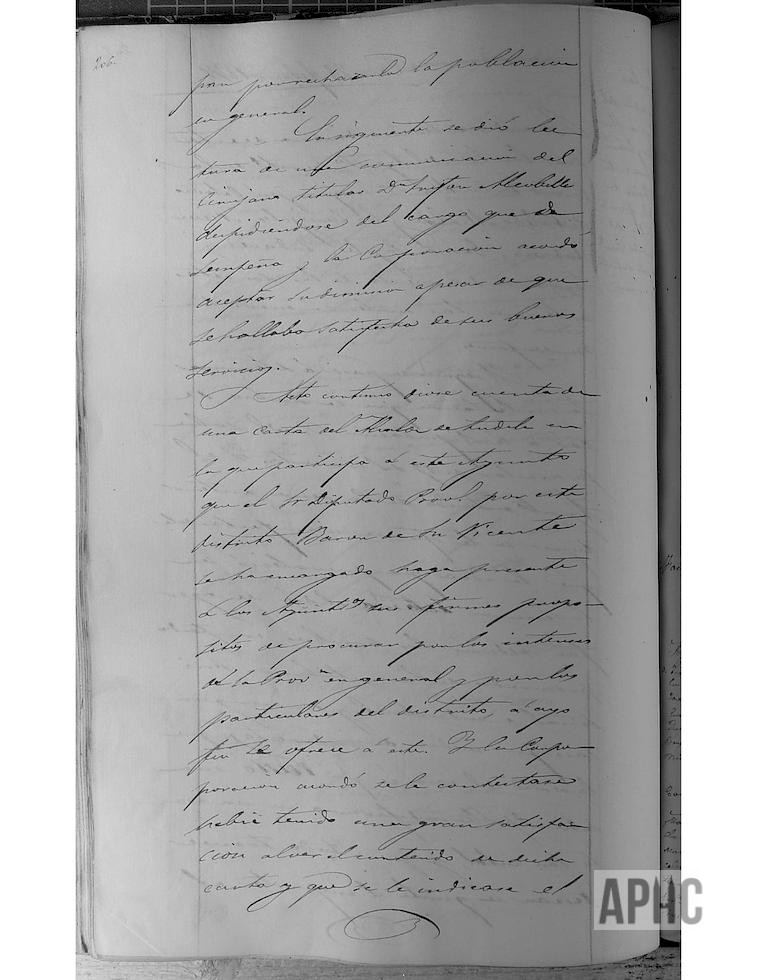 206.
por rechazarlo la poblacion
en general.
Enseguida se dió lec-
tura de una comunicacion del
Cirujano titular Dn
despidiéndose del cargo que de-
sempeña y la Corporacion acordó
aceptar su dimision apesar de que
se hallaba satisfecha de sus buenos
servicios.
Acto continuo diose cuenta de
una carta del Alcalde de Tudela en
la que participa á este Ayunto
que el Sr Diputado Provl por este
distrito Baron de Sn Vicente
le ha encargado haga presente
á los Ayuntos sus firmes propo-
sitos de procurar por los intereses
de la Prova en general y por los
particulares del distrito, á cuyo
fin se ofrece á este. Y la Corpo-
poracion acordó se le contestase
habia tenido una gran satisfa-
cion al ver el contenido de dicha
carta y que se le indicase el
APHC